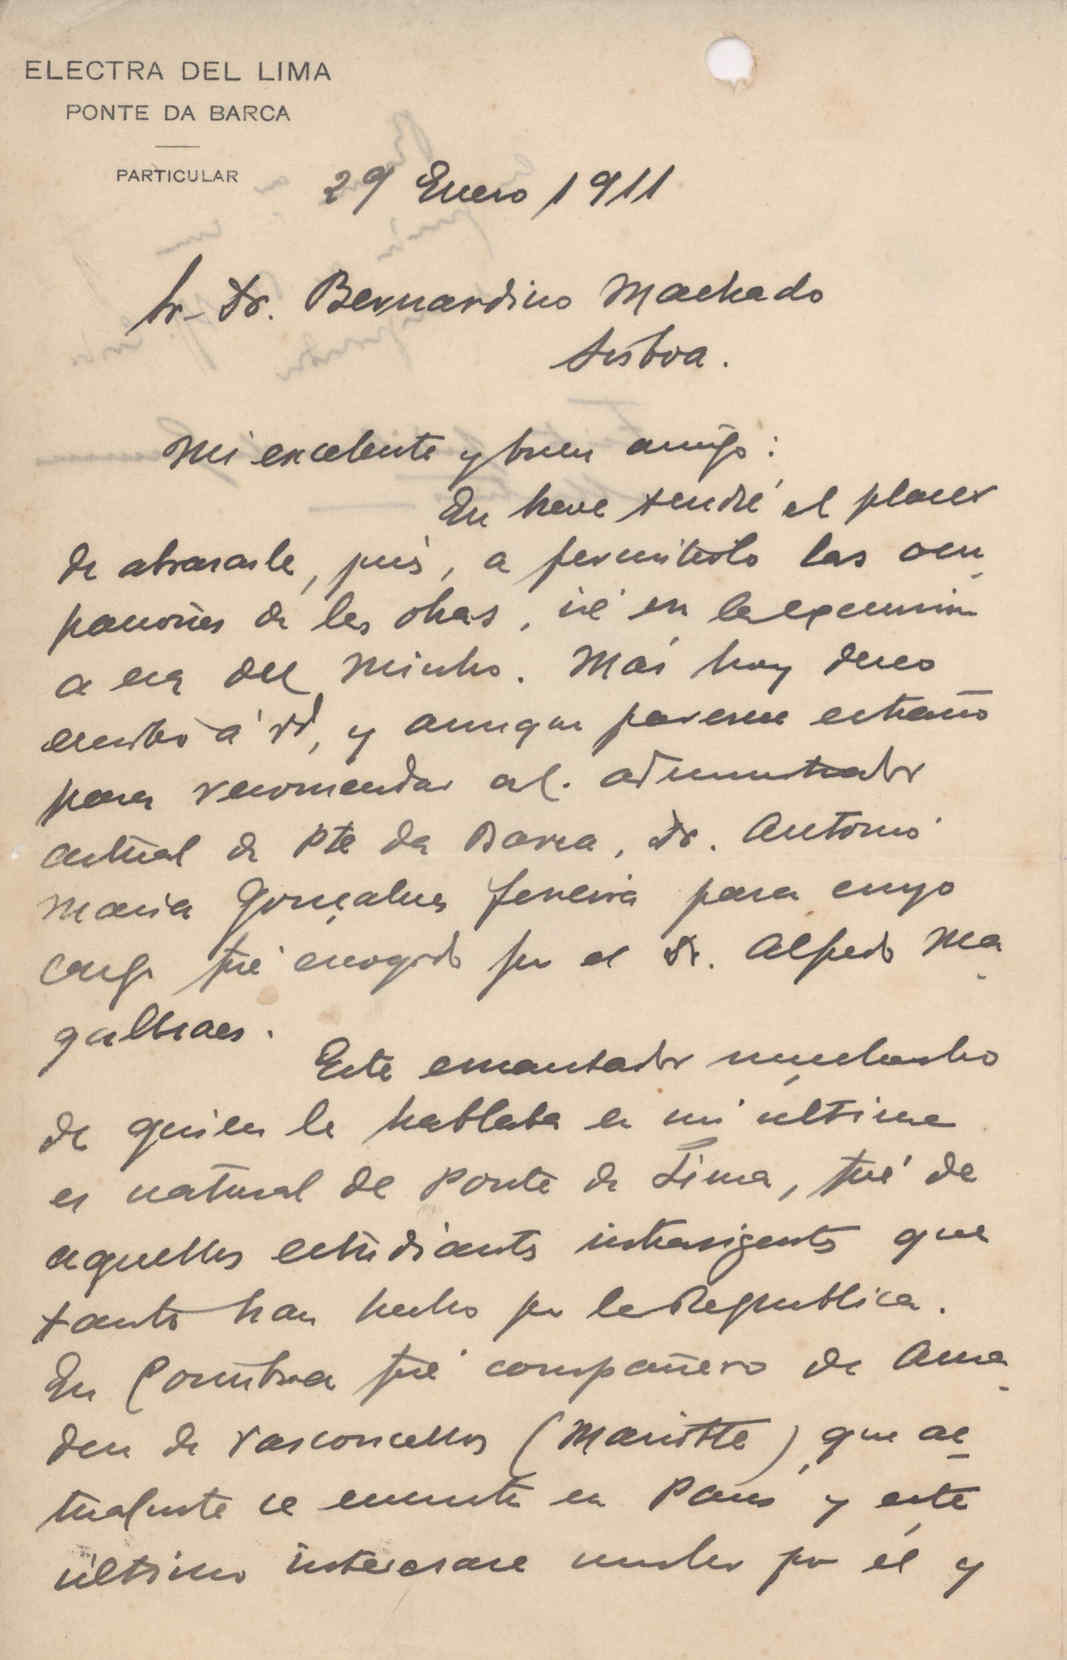 ELECTRA DEL LIMA
PONTE DA BARCA
PARTICULAR
29 Enero 1911
Sr. Dr. Bernardino Machado
Lisboa.
Mi excelente y buen amigo:
En breve tendré el placer
de abrazarle, pues, a permitirlo las ocu
paciones de las obras, iré en la excursion
a esa del Minho. Mas hoy deseo
escribo á Vd, y aunque parezca extraño
para recomendar al administrador
actual de Pte da Barca, Dr. Antonio
Maria Gonçalves Pereira para cuyo
cargo fué escogido por el Dr. Alfredo Ma
galhaes.
Este encantador muchacho
de quien le hablaba en mi última
es natural de Ponte de Lima, fué de
aquellos estudiantes intransigentes que
tanto han hecho por la Republica.
En Coimbra fué compañero de Ama
deu de Vasconcellos (Mariotte) que ac
tualmente se encuentra en Paris y este
último interesase mucho por él y